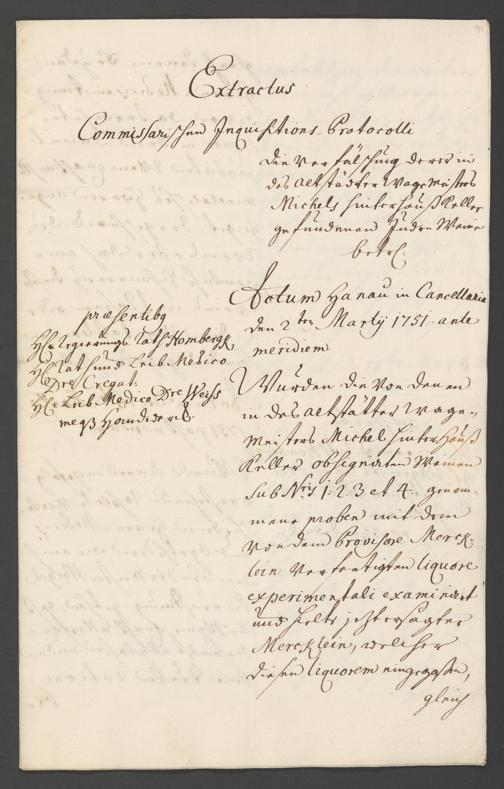 Extractus
Commissarischen Inquisitions Protocolli
die Verfälschung derer in
des Altstädter Wagemeisters
Michels Hinterhauß Keller
gefundenen Juden Weine
betr.
Actum Hanau in Cancellaria
den 2ten Martÿ 1751. ante
meridiem
præsentibg
H. Regierungs Rath Hombergk
H. Rath und Leib Medico
Dre Cregut.
H. Leib Medico Dre Weiss
meqs
Wurden die von denen
in des Altstätter Wage-
meisters Michel Hinterhauß
Keller obsignirten Weinen
sub Nris 1. 2. 3. et 4. genom-
mene proben mit dem
von dem Provisore Merck-
lein verfertigten liquore
experimentali examinirt
und hielte jetztersagter
Mercklein, welcher
diesen liquorem eingegossen,
gleich